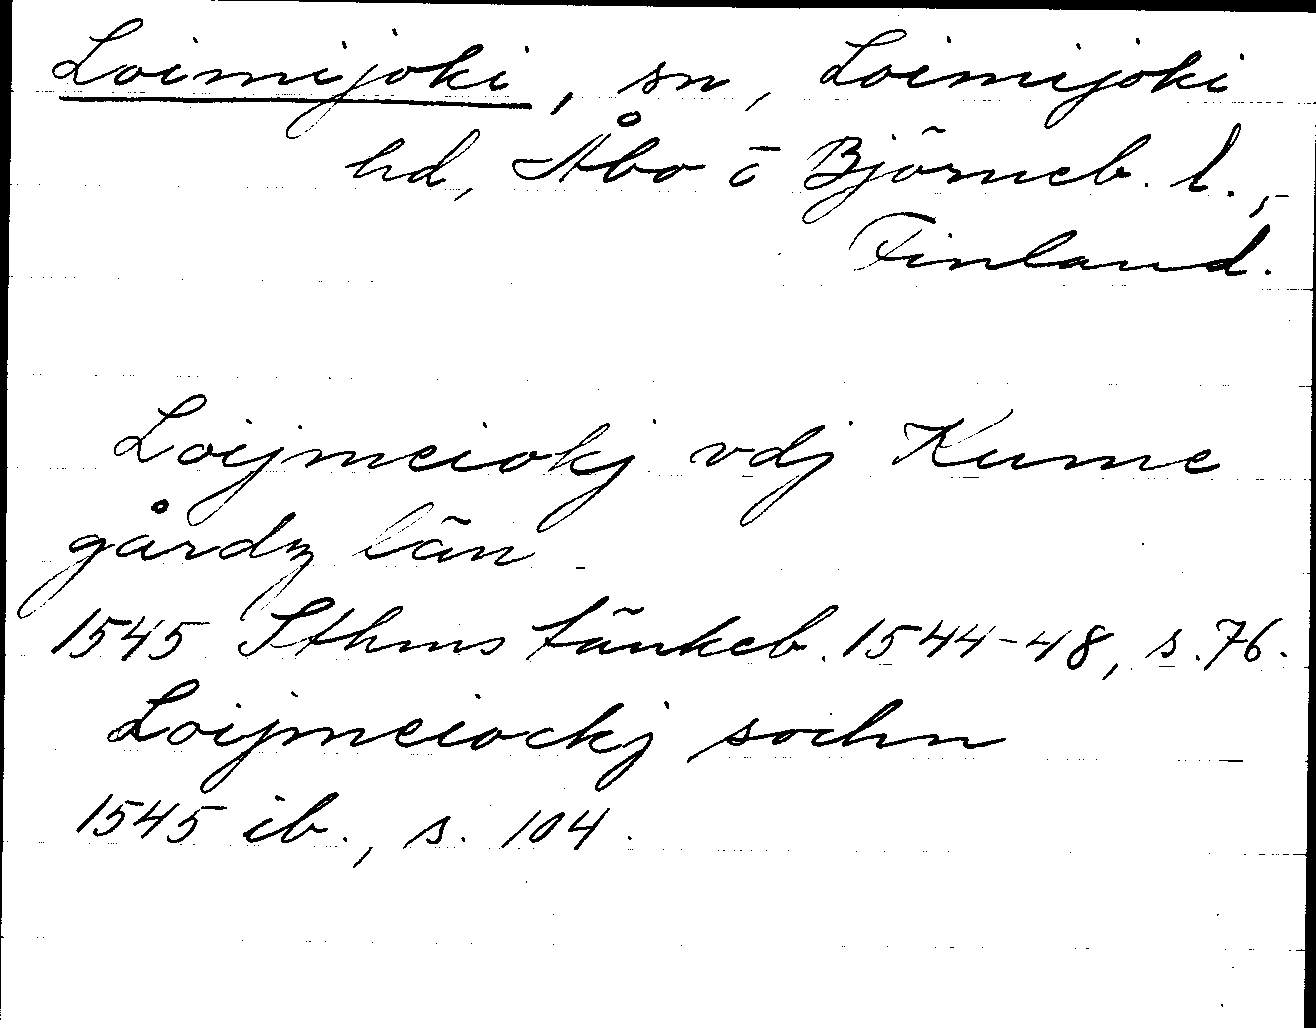 Loimijoki, sn, Loimijoki
hd, Åbo o Björneb. l.,
Finland.
Loijmeiokj vdj Kume
gårdz län
1545 Sthms tänkeb. 1544-48, s. 76.
Loijmeiockj sochn
1545 ib., s. 104.